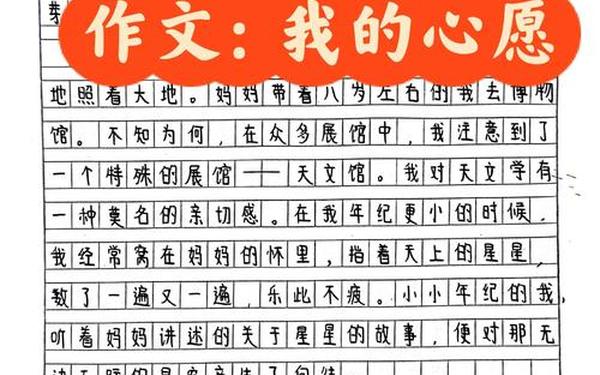 芽
作文：我的心愿
地照着大地。妈妈带着八岁左右的我去博物
馆。不知为何，在众多展馆中，我注意到了
一个特殊的展馆——天文馆。我对天文学有
一种莫名的亲切感。在我年纪更小的时候，
我经常窝在妈妈的怀里，指着天上的星星，
数了一遍又一遍，乐此不疲。小小年纪的我，
听着妈妈讲述的关于星星的故事，便对那无